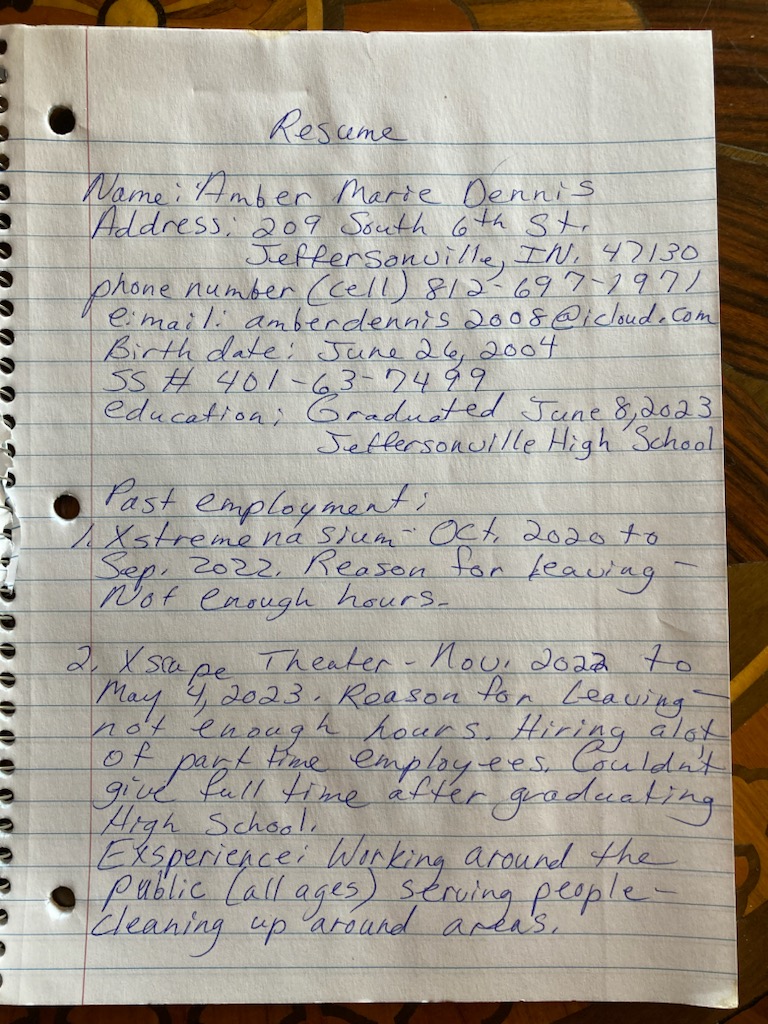 Resume
Name: Amber Marie Dennis
Address: 209 South 6th St.
Jeffersonville, IN. 47130
phone number (cell) 812-697-1971
e:mail: amberdennis2008@icloud.com
Birth date: June 26, 2004
SS # 401-63-7499
education; Graduated June 8, 2023
Jeffersonville High School
Past employment:
1. Xstremenasium - Oct. 2020 to
Sep. 2022. Reason for Leaving -
Not enough hours.
2. Xscape Theater - Nov. 2022 to
May 4, 2023. Reason for Leaving -
not enough hours. Hiring alot
of part time employees. Couldn't
give full time after graduating
High School.
Exsperience: Working around the
public (all ages) serving people -
cleaning up around areas.